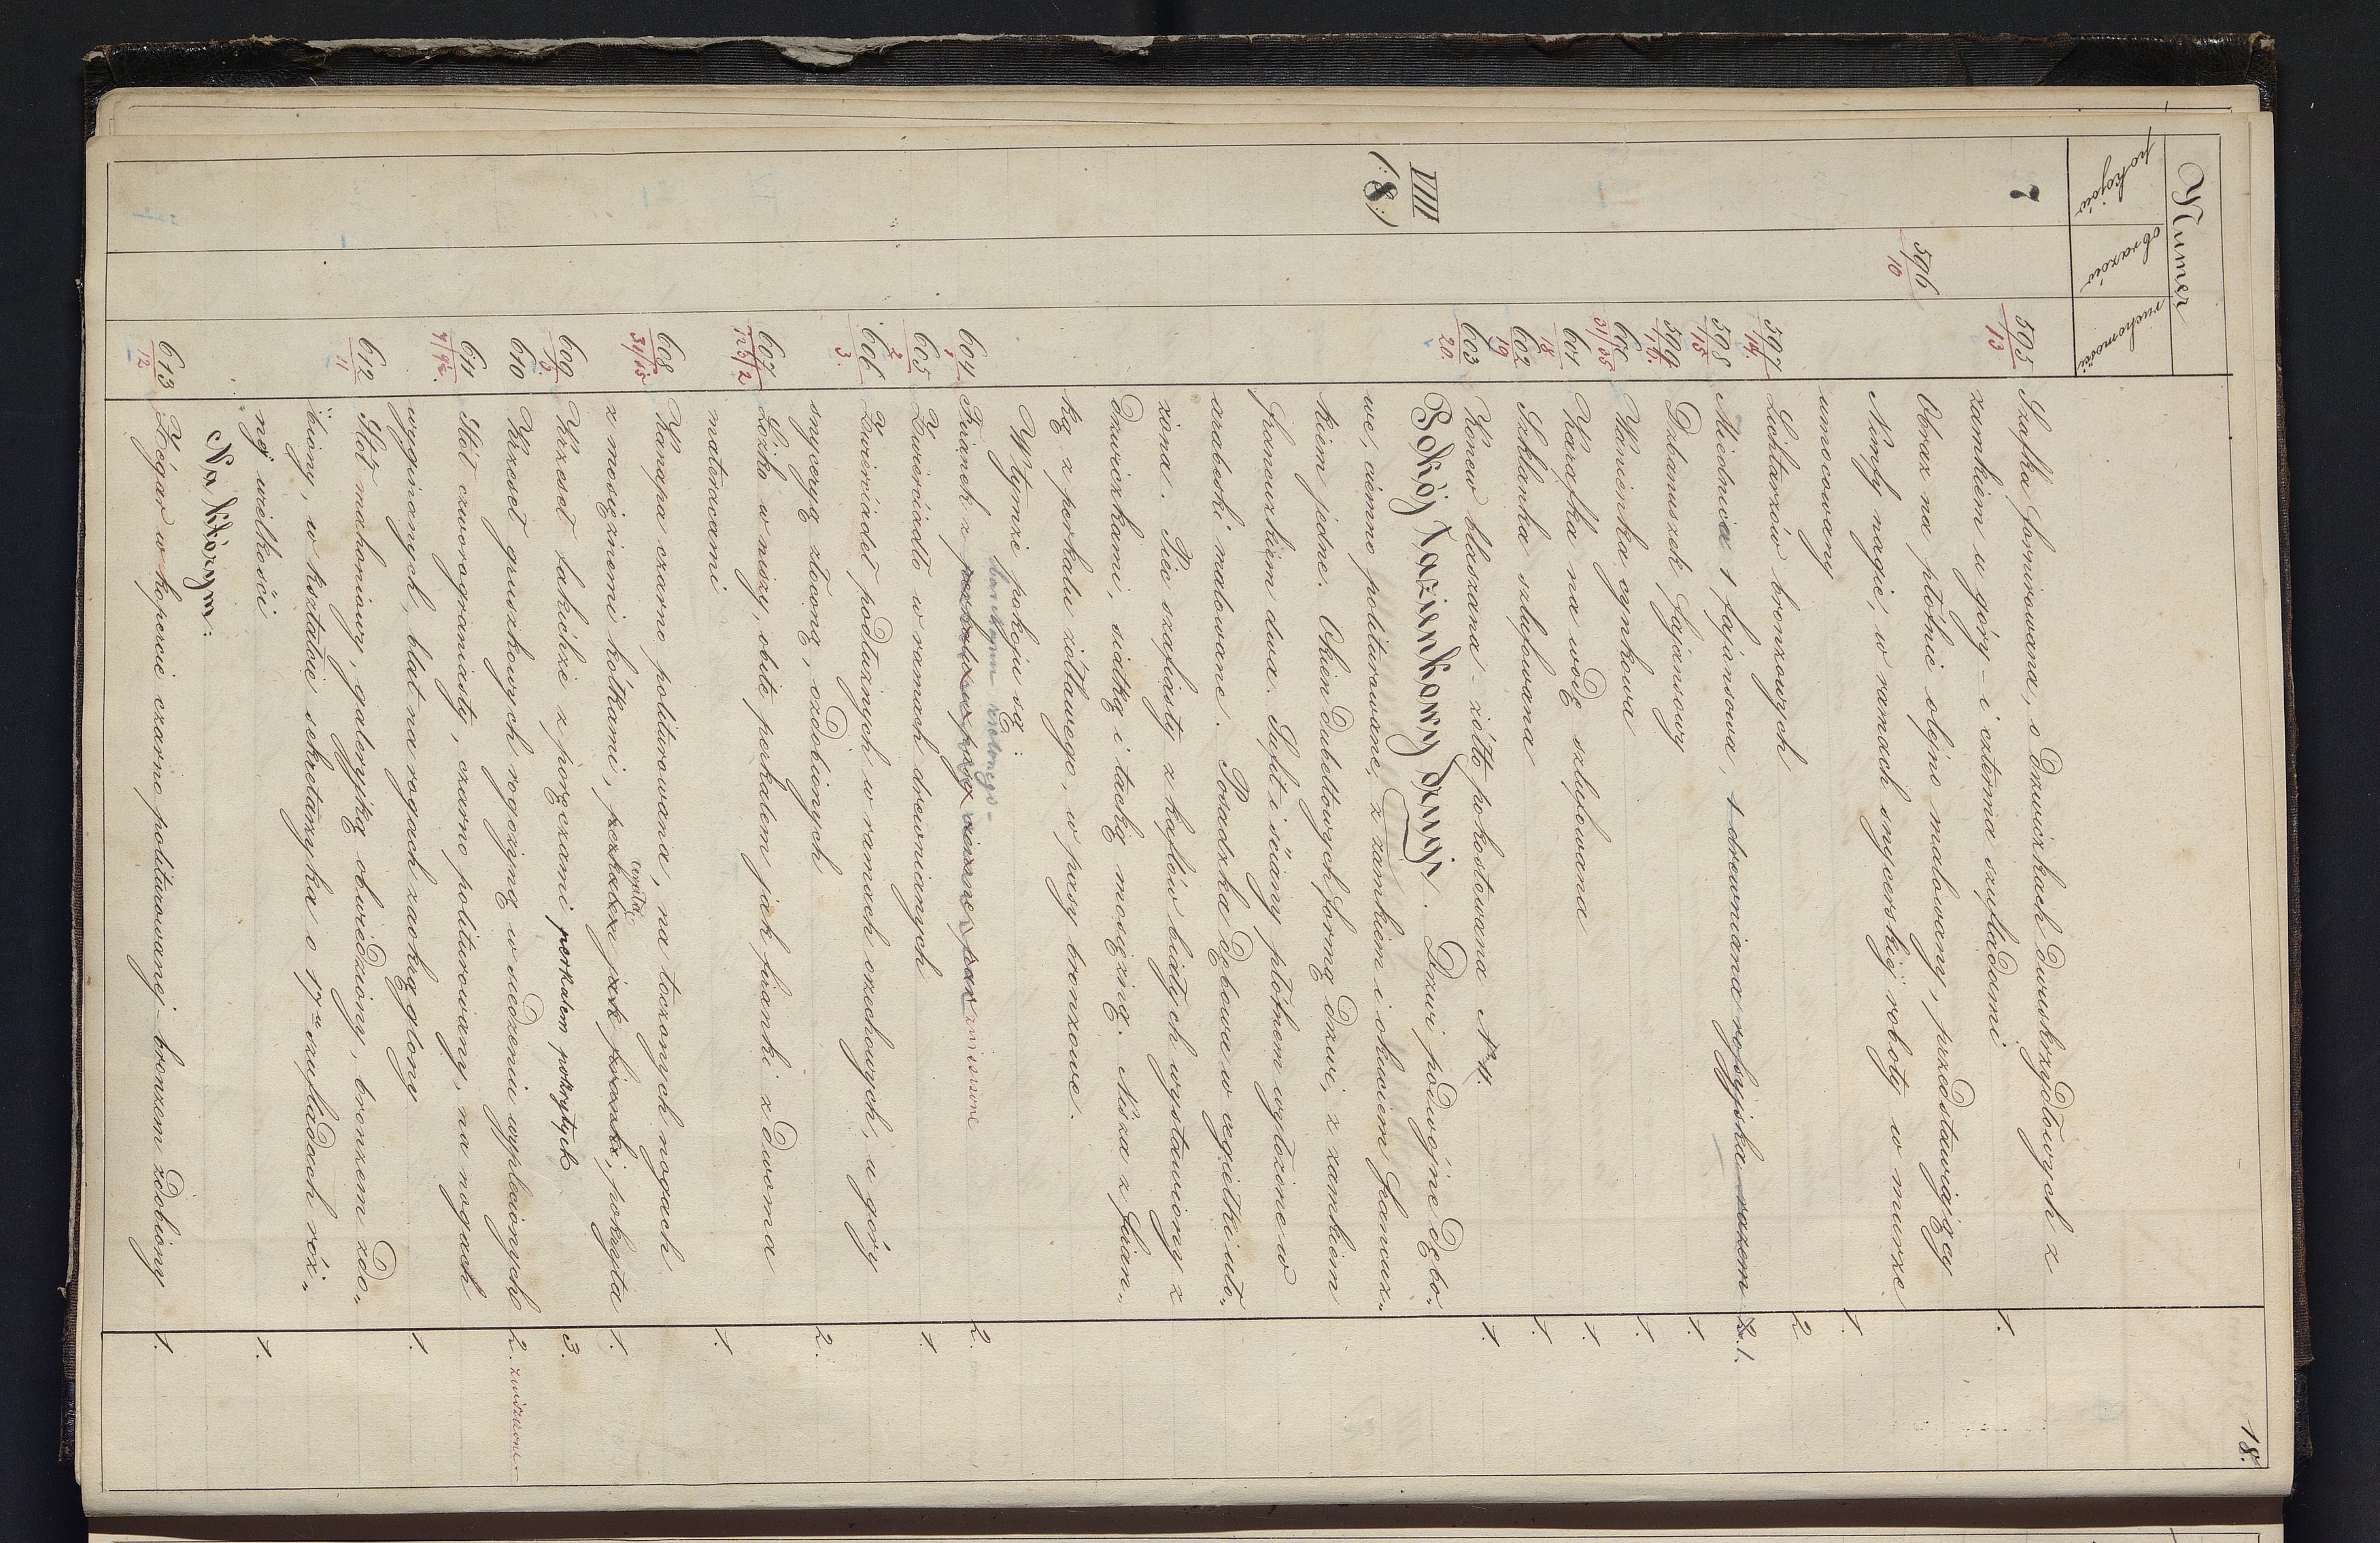 18.
Numer
pokojów
obrazów
ruchomości
7
595
13
Szafka fornirowana, o drzwiczkach dwuskrzydłowych z
zamkiem u góry – i czterma szufladami
1.
596
10
Obraz na płótnie olejno malowany, przedstawiający
Nimfy nagie, w ramach snycerskiej roboty w murze
umocowany
1.
597
14.
Lichtarzów bronzowych
2
598
15
Miednica 1 fajansowa, 1 drewniana rossyjska razem
2. 1.
599
16.
Dzbanuszek fajansowy
1.
600
31/35
Wanienka cynkowa
1.
601
18.
Karafka na wodę szlifowana
1.
602
19
Szklanka szlifowana
1.
603
20.
Konew blaszana – żółto pokostowana
1.
VIII
(8.)
Pokój Łazienkowy drugi. Drzwi podwójne dębo„
we, ciemno politurowane, z zamkiem i okuciem francuz„
kiem jedne. Okien dubeltowych formą drzwi, z zamkiem
francuzkiem dwa. Sufit i ściany płótnem wyłożone w
arabeski malowane. Posadzka dębowa w cegiełki uło„
żona. Piec szafiasty z kaflów białych wystawiony z
drzwiczkami, siatką i tacką mosiężną. Nisza z firan„
ką z perkalu żółtawego, w pasy bronzowe.
W tymże pokoju są:
604
1
barchanu zielonego –
Firanek z perkalu w pasy siwane par zniszczone
2.
605
2
Zwierciadło w ramach drewnianych
1.
606
3.
Zwierciadeł podłużnych w ramach orzechowych, u góry
snyceryą złoconą, ozdobionych
2.
607
123/2
Łóżko w niszy, obite perkalem jak firanki z dwoma
materacami
1.
608
34/15
Kanapa czarno politurowana, na toczonych nogach
z mosiężnemi kółkami, perkalem jak firanki, pokryta
ceratą
1.
609
9
Krzeseł takichże z poręczami perkalem pokrytych
3.
610
Krzeseł gruszkowych rogożyną w siedzeniu wyplecionych
2. zniszczone –
611
Stół czworogramiasty, czarno politurowany, na nogach
wyginanych, blat na rogach zaokrąglony
1.
612
11
Stół mahoniowy, galeryjką obwiedziony, bronzem zdo„
biony, w kształcie sekretarzyka o 17tu szufladach róż„
nej wielkości
1.
Na którym:
613
12
Zegar w kopercie czarno politurowanej bronzem zdobiony
1.